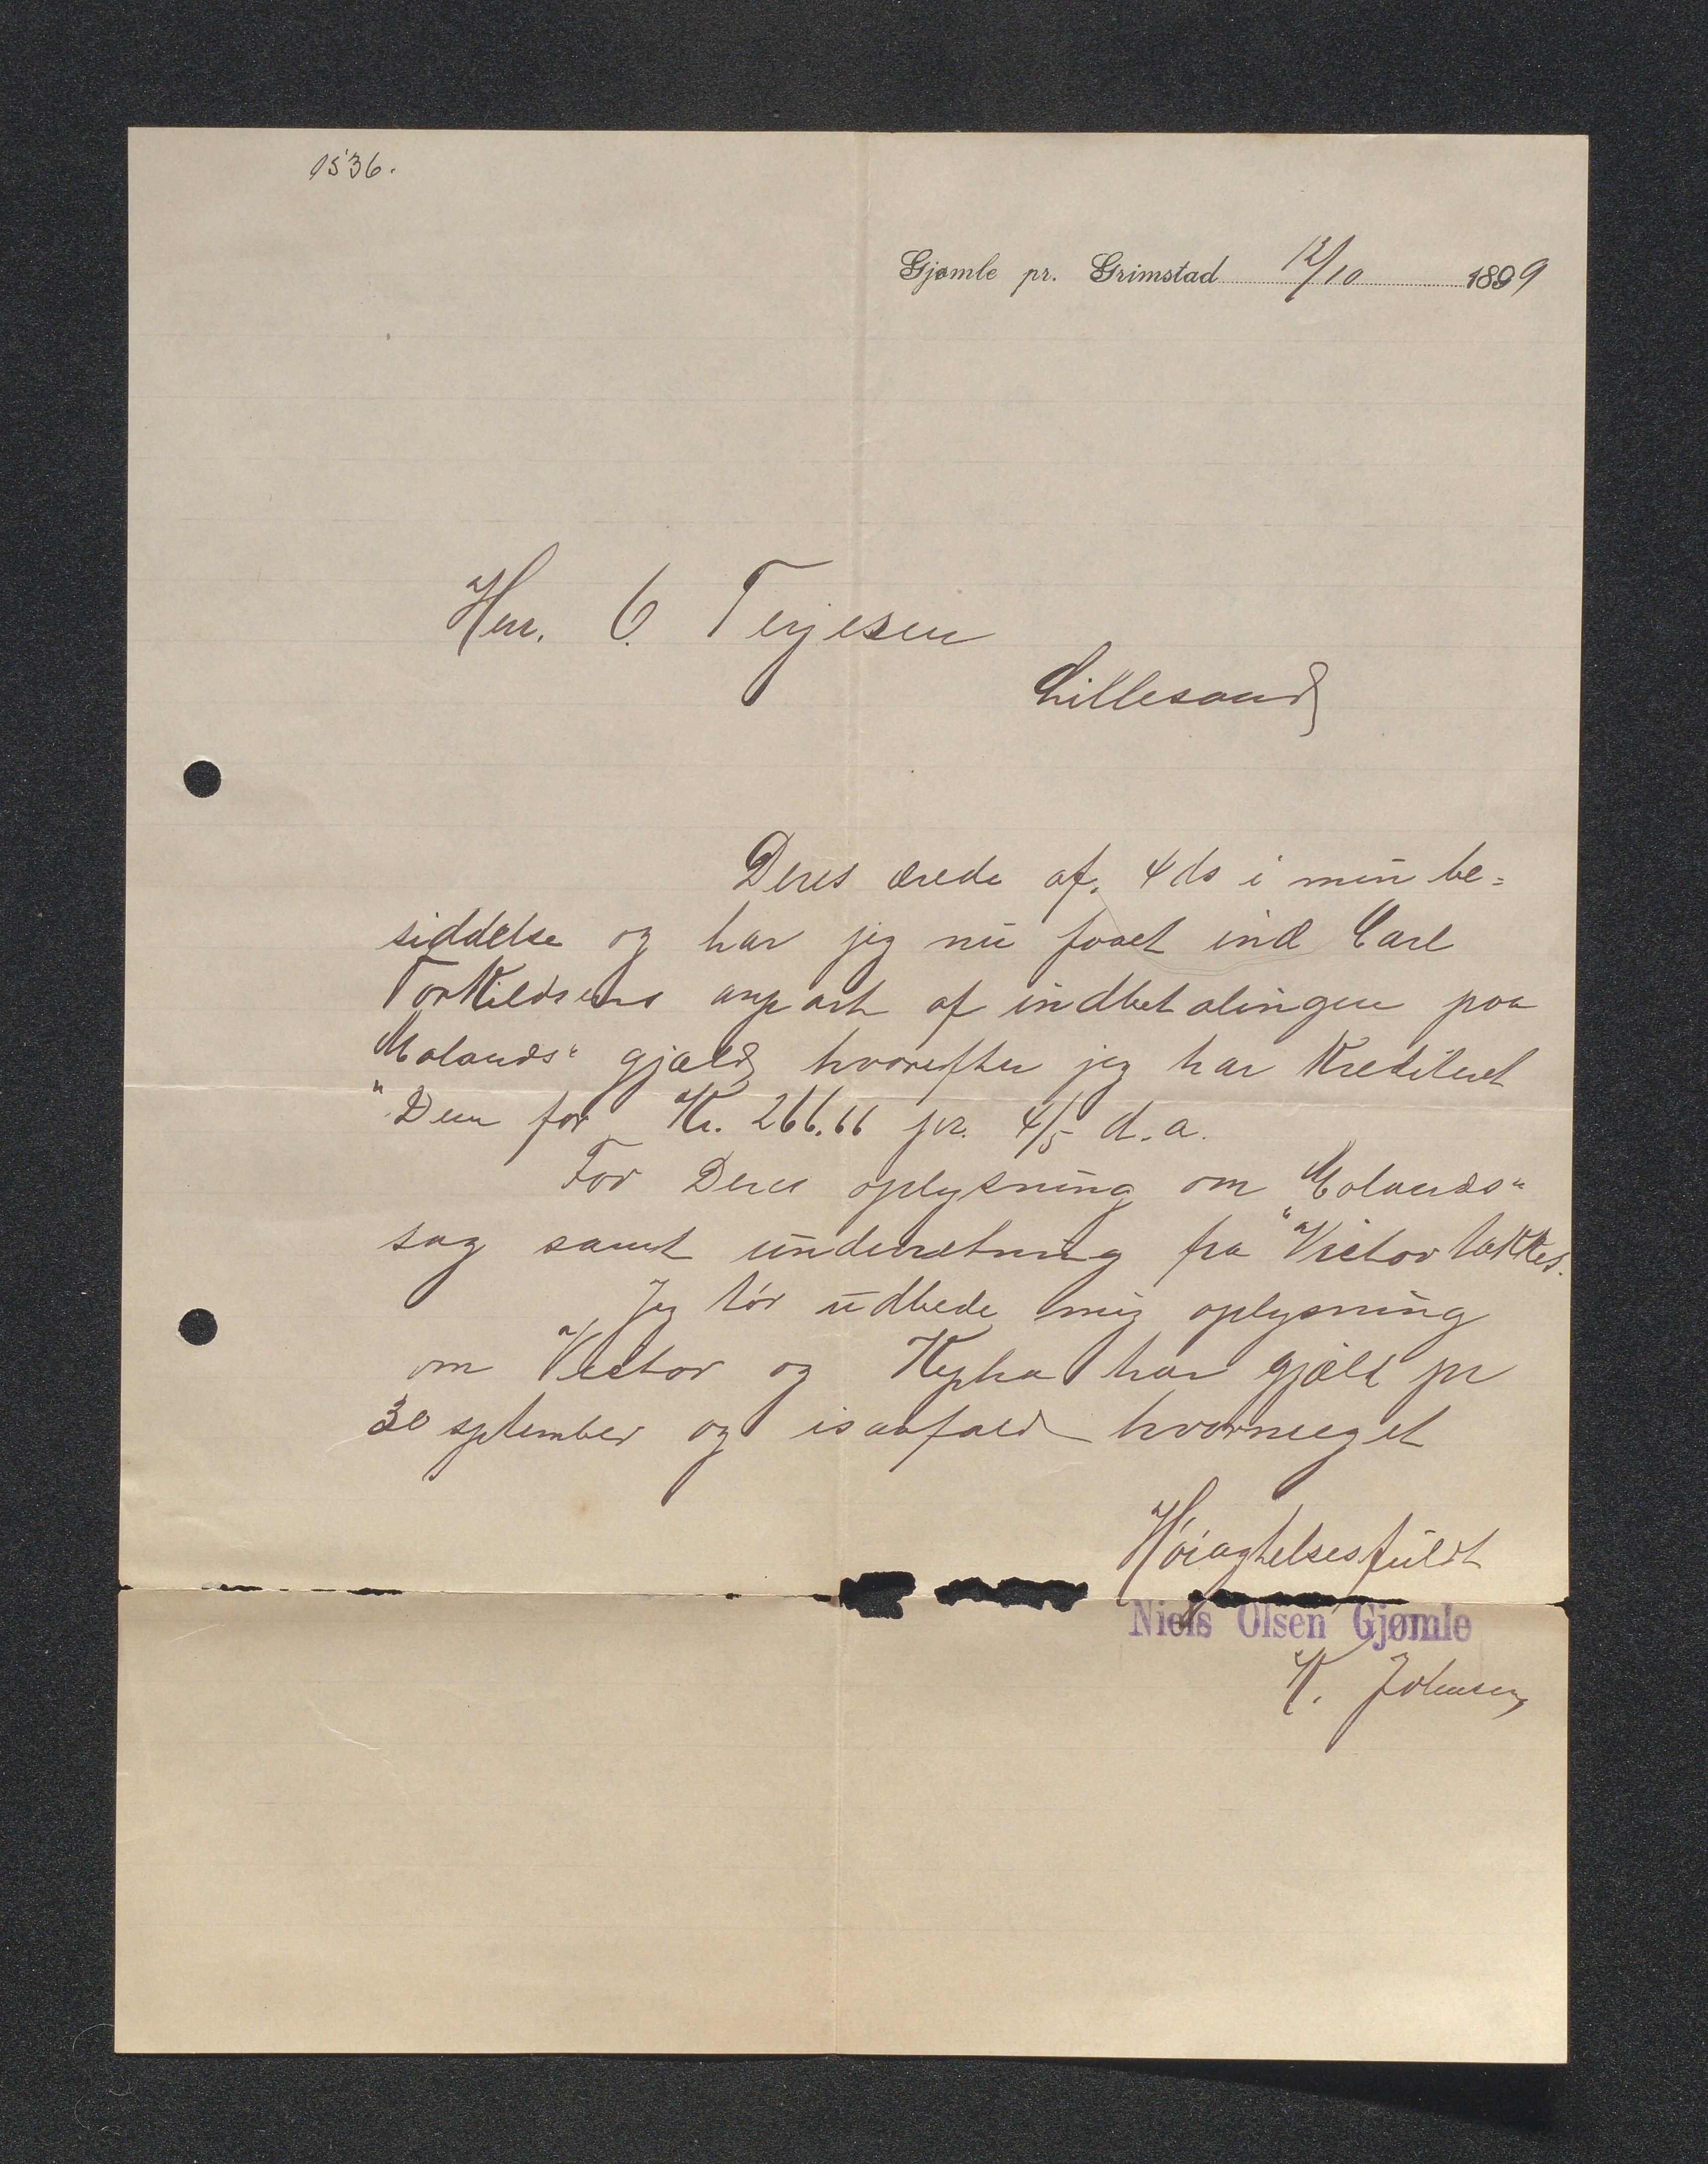 1536.
Gjømle pr. Grimstad 12/10 1899
Herr. O. Terjesen
Lillesand
Deres ærede af. 4 ds i min be=
siddelse og har jeg nu faaet ind Carl
Torkildsens anpart af indbetalingen paa
"Molands" gjæld hvorefter jeg har krediteret
Dem for Kr. 266.66 pr. 4/5 d. a.
For Deres oplysning om "Molands"
sag samt underretning fra "Victor" takkes.
Jeg tör udbede mig oplysning
om Victor og Kepha har gjæld pr
30 september og isaafald hvormeget
Höiagtelsesfuldt
Niels Olsen Gjømle
K. Johnsen